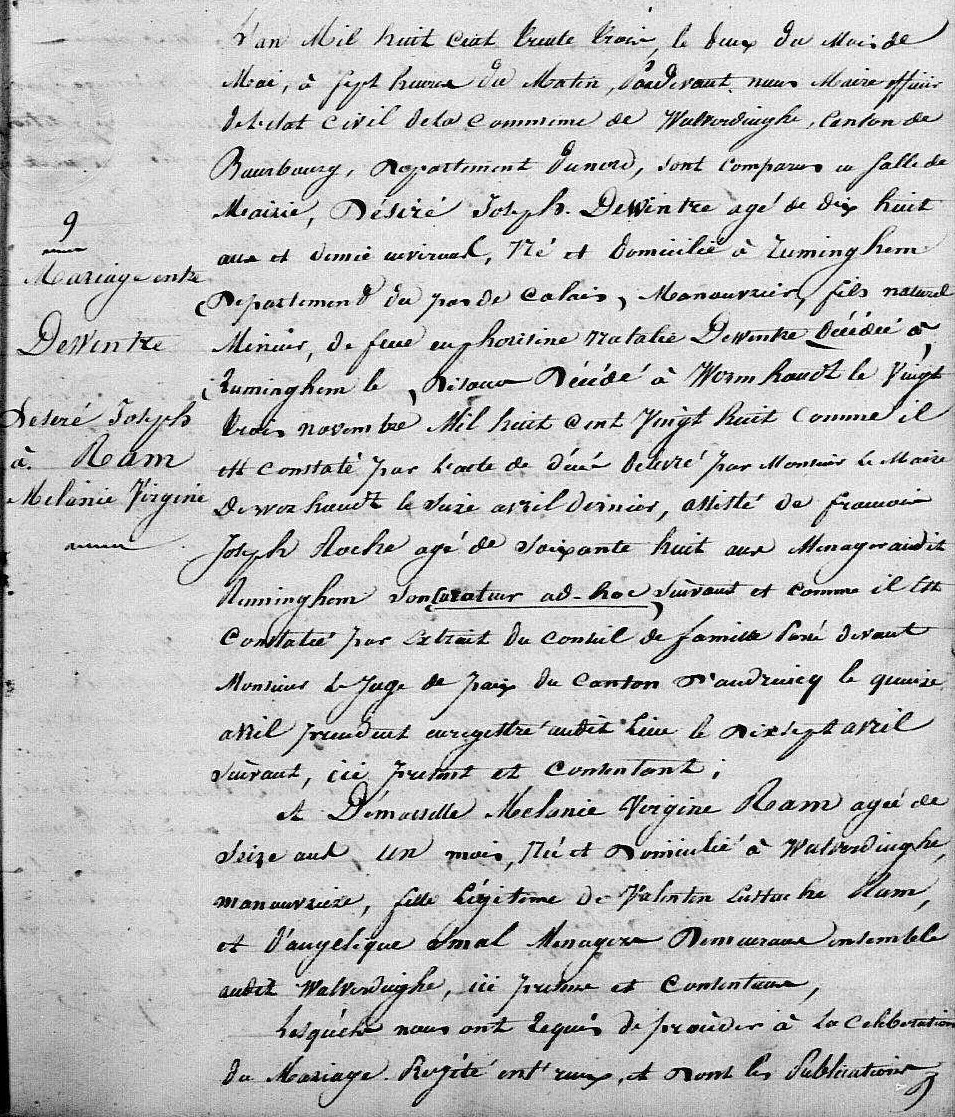 9
Mariage entre
DeWintre
Desiré Joseph
à Ram
Melanie Virgine
L'an Mil huit cent trente trois, le deux du Mois de
Mai, à sept heures du Matin, Pardevant nous Maire officier
de l'etat civil de la commune de Wulverdinghe, Canton de
Bourbourg, Departement du nord, sont comparus en salle de
Mairie, Désiré Joseph DeWintre agé de dix huit
ans et demie environs, Né et domicilié à Ruminghem
Departement du pas de Calais, Manouvrier, fils naturel
Mineur, de feue euphorisine Natalie DeWintre décédée à
Ruminghem le Décédé à Wormhoudt le Vingt
trois novembre Mil huit cent Vingt huit comme il
est constaté par l'acte de décé delivré par Monsieur Le Maire
de worhoudt le seize avril dernier, assisté de francois
Joseph Roche agé de soixante huit ans Menager audit
Ruminghem son curateur ad-hoc suivant et comme il Est
Constatée par Extrait du conseil de famille Passé devant
Monsieur Le Juge de paix du Canton d'audruicq le quinze
avril precedent enregettré audit Lieu le dixsept avril
suivant, ici present et consentant;
et Démoiselle Melanie Virgine Ram agée de
seize ans un mois, Né et Domicilié à Wulverdinghe,
manouvriere, fille Légitime de Valentin Eustache Ram,
et d'angelique Menagers Demeurans ensemble
audit Wulverdinghe, ici presens et Consentans,
Lesquels nous ont Requis de procéder à La Celeberation
du Mariage Projété entr'eux, et dont les Publications